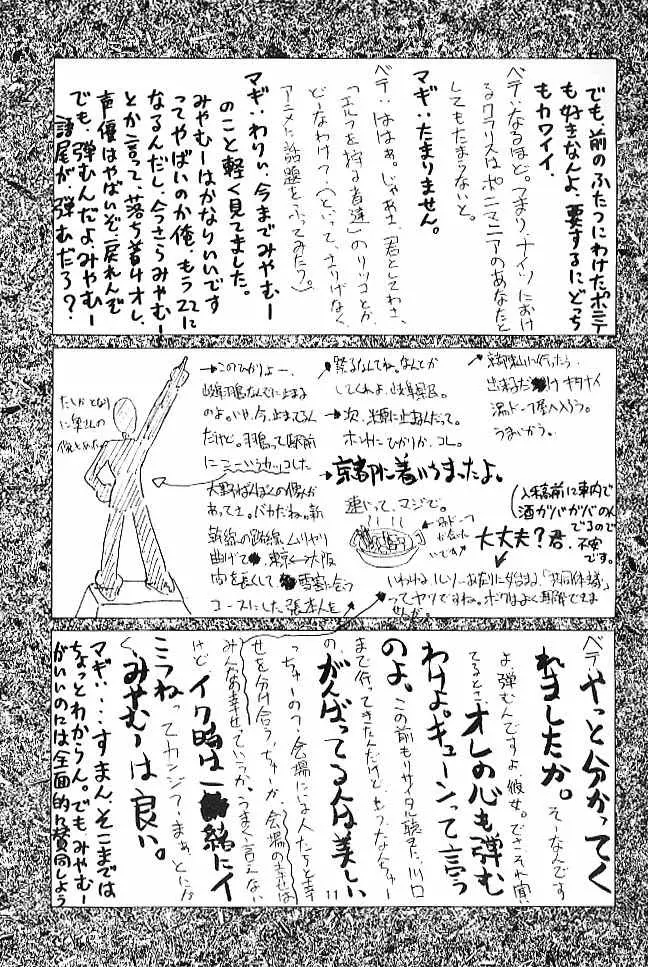 でも、前のふたつにわけたポニテ
も好きなんよ、要するにどっち
もカワイイ。
ベテ:なるほど。つまり、ナイツにおけ
るクラリスはポニマニアのあなたと
してもたまらないと。
マギ:たまりません。
ベテ:ははぁ。じゃあさ、君としてわさ、
「エルフを狩る者達」のリツコとか、
どーなわけ?(といって、さりげなく
アニメに話題をふってみたり。)
マギ:わりぃ、今までみやむー
のこと軽く見てました。
みやむーはかなりいいです
ってやばいのか俺、もう22に
なるんだし、今さらみやむー
とか言って、落ち着けオレ、
声優はやばいぞ、戻れんぞ
でも、弾むんだよみやむー
語尾が弾むだろ?
たしかとなり
に
の像とかが
→このひかりよー、
岐阜羽島なんぞに止まる
のよ。いや、今、止まってるん
だけど。羽島って駅前
に
大野ばんぼくの像が
あってさ。バカだね。新
幹線の路線、ムリヤリ
曲げて東京↔大阪
間を長くして、雪害に会う
コースにした張本人を
祭るなんてね。なんとか
してくれよ、岐阜県民。
→次、米原に止まるんだって。
ホンカにひかりか、コレ。
→京都に着いちまったよ。
速いって、マジで。
京都
キタナイ
屋へ入ろう。
うまいかう。
(入稿前に車内で
酒ガバガバのん
でるので
不安
です。
大丈夫?君、
いわゆる
「共同体域」
ってヤツですね。ボクはよく理解できま
せんが。
ベテ:やっと分かってく
れましたか。そーなんです
よ、弾むんですよ、彼女。でさ、それ聞い
てるとさ、オレの心も弾む
わけよ。キューンって言う
のよ、この前もリサイタル聴きに、川口
まで行ってきたんだけど、もうなんちゅー
の、がんばってる人は美しい!!
っちゅーの?会場にいる人たちと幸
せを分け合う、ちゅーか、会場の幸せは
みんなの幸せっていうか、うまく言えない
けど、イク時は一緒にイ
こうねってカンジ?まぁ、とにか
く、みやむーは良い。
マギ:…すまん、そこまでは
ちょっとわからん。でも、みやむー
がいいのには全面的に賛同しよう